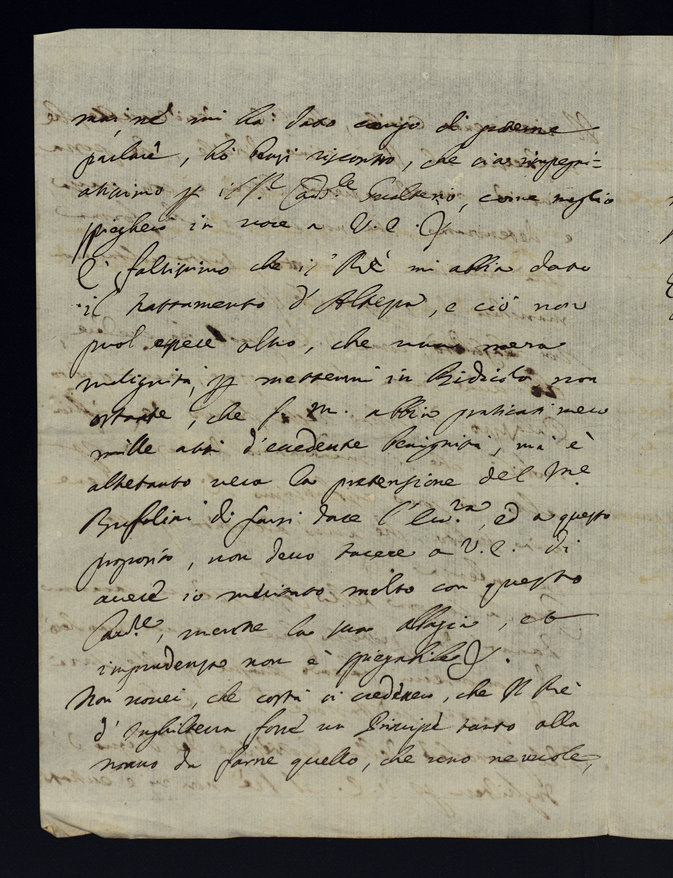 mai nè mi hà dato campo di poterne
parlare, hò bensì riscontro, che sia impegn=
atissimo p il S.r Card.le Gualterio, come meglio
spiegherò in voce a V. E. (
È falsissimo che il Rè mi abbia dato
il trattamento d'Altezza, e ciò non
puol essere altro, che una mera
malignità, p mettermi in Ridicolo non
ostante, che S. M. abbia praticati meco
mille atti d'eccedente benignità, mà è
altretanto vera la pretensione del
Bufalini di farsi dare l'Ecc.za, ed a questo
proposito, non devo tacere a V. E. di
avere io meritato molto con questo
Card.le, mentre la sua albagia, et
imprudenza non è spiegabile).
Non vorrei, che costì si credesse, che il Rè
d'Inghilterra fosse un Principe tanto alla
mano da farne quello, che uno ne vuole,